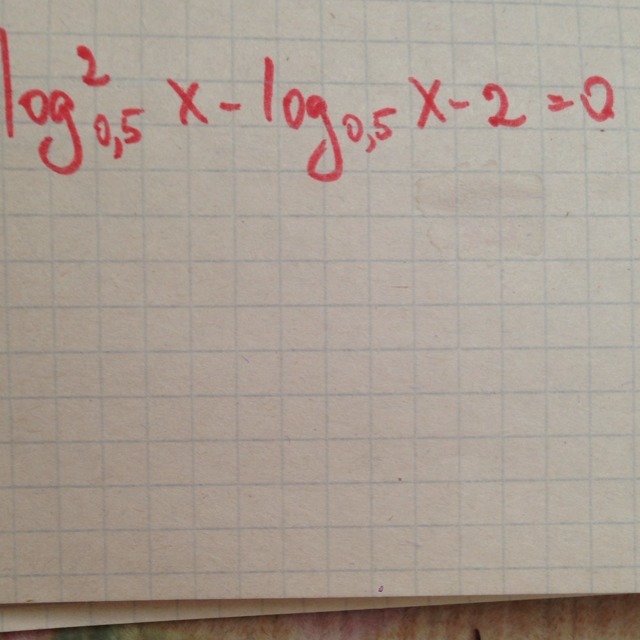 log²₀,₅ x - log₀,₅ x - 2 = 0